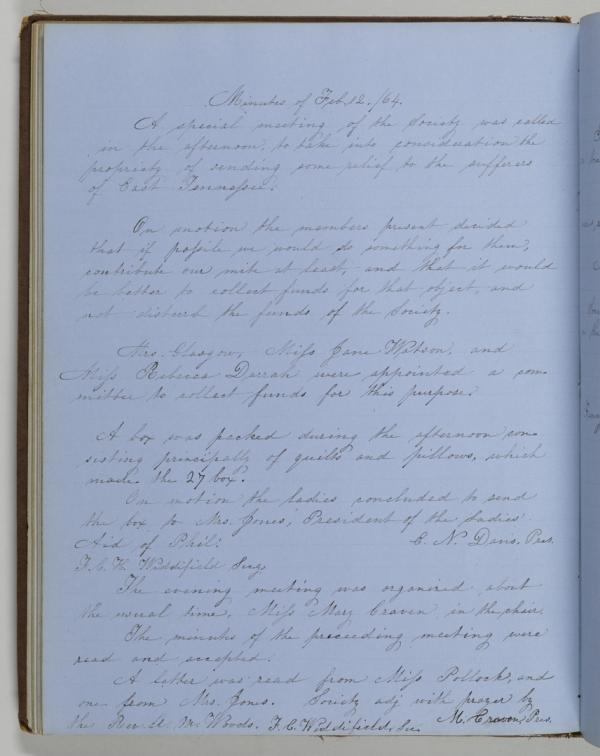 Minutes of Feb. 12. /64.
A special meeting of the Society was called
in the afternoon, to take into consideration the
propriety of sending some relief to the sufferers
of East Tennessee.
On motion the members present decided
that if possile we would do something for them,
contribute our mite at least, and that it would
be better to collect funds for that object, and
not disturb the funds of the Society.
Mrs. Glasgow, Miss Jane Watson, and
Miss Rebeca Darrah were appointed a com
mittee to collect funds for this purpose.
A box was packed during the afternoon con
sisting principally of quilts and pillows, which
made the 27 box.
On motion the ladies concluded to send
the box to Mrs. Jones, President of the Ladies
Aid of Phil:
C. N. Davis, Pres.
F. C. H. Widdifield Secy
The evening meeting was organized about
the usual time, Miss Mary Craven in the chair.
The minutes of the preceeding meeting were
read and accepted.
A letter was read from Miss Pollock, and
one from Mrs. Jones. Society adj with prayer by
the Rev. Woods. F. C. Widdifield, Sec. M. Craven, Pres.